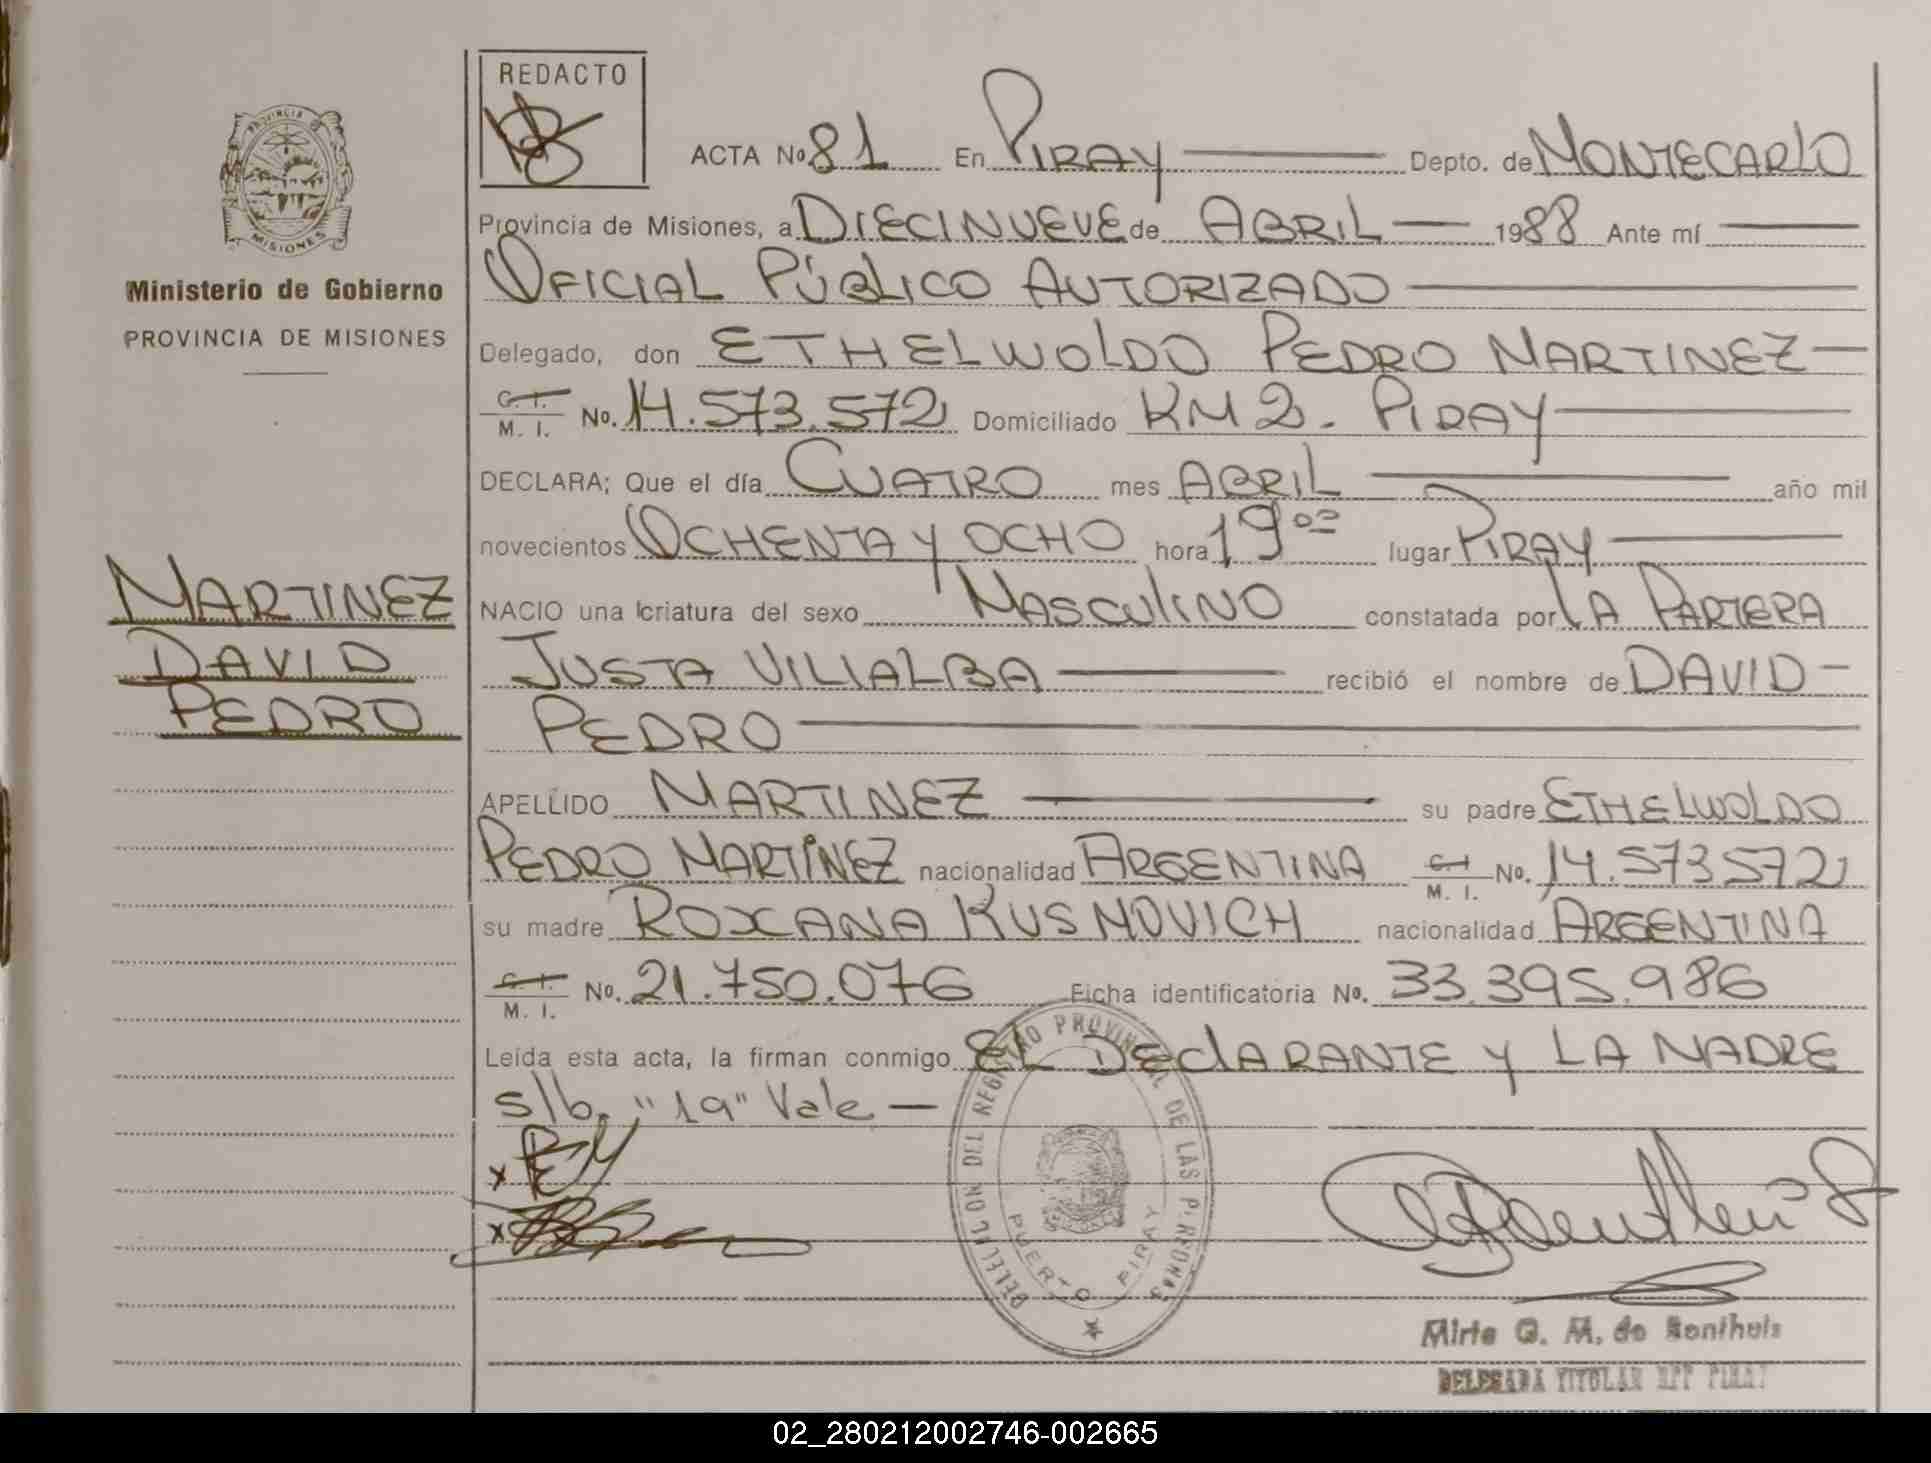 REDACTO
PROVINCIA DE
MISIONES
Ministerio de Gobierno
PROVINCIA DE MISIONES
MARTINEZ
DAVID
PEDRO
ACTA No. 81 En PIRAY Depto. de MONTECARLO
Provincia de Misiones, a DIECINUEVE de ABRIL 1988 Ante mí
OFICIAL PÚBLICO AUTORIZADO
Delegado, don ETHELWOLDO PEDRO MARTINEZ
C. I. M. I. No. 14.573.572 Domiciliado KM 2. PIRAY
DECLARA; Que el día CUATRO mes ABRIL año mil
novecientos OCHENTA Y OCHO hora 19 00 lugar PIRAY
NACIO una criatura del sexo MASCULINO constatada por LA PARTERA
JUSTA VILLALBA recibió el nombre de DAVID
PEDRO
APELLIDO MARTINEZ su padre ETHELWOLDO
PEDRO MARTÍNEZ nacionalidad ARGENTINA C. I. M. I. No. 14.573572
su madre ROXANA KUSMOVICH nacionalidad ARGENTINA
C. I. M. I. No. 21.750.076 Ficha identificatoria No. 33.395.986
Leída esta acta, la firman conmigo EL DEClARANTE Y LA MADRE
s/b. "19" Vale
DELEGACION DEL REGISTRO PROVINCIAL DE LAS PERSONAS
PUERTO PIRAY
Mirta G. M. de
DELEGADA TITULAR RPP PIRAY
02_280212002746-002665